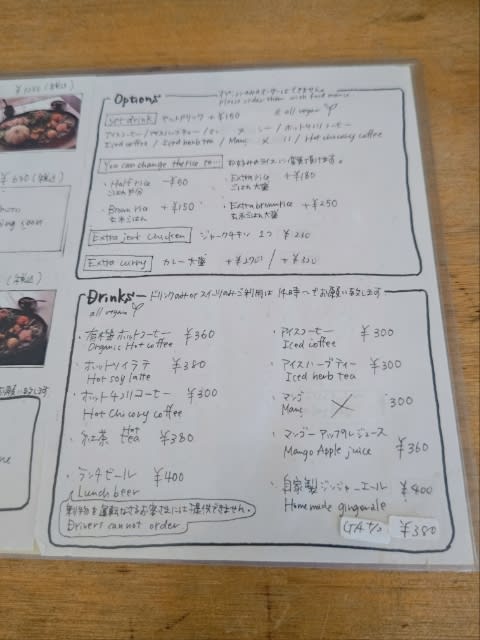 ¥630(税込)
ing soon
Options
オプションのみのオーダーはできません。
Please order them with food menu.
Set drink セットドリンク +¥150
all vegan
アイスコーヒー / アイスハーブティー / ホットチコリコーヒー
Iced coffee / Iced herb tea / Mang / Hot chicory coffee
You can change the rice to… お好みのライスに変更頂けます。
・Half rice -¥50
ごはん半分
・Extra rice +¥180
ごはん大盛
・Brown rice +¥150
玄米ごはん
・Extra brown rice +¥250
玄米ごはん大盛
Extra jerk chicken ジャークチキン 1つ ¥230
Extra curry カレー大盛 / +¥320
Drinks ドリンクのみorスイーツのみご利用は 14時〜でお願い致します
all vegan
・有機ホットコーヒー ¥360
Organic Hot coffee
・ホットソイラテ ¥380
Hot soy latte
・ホットチコリコーヒー ¥300
Hot Chicory coffee
・紅茶 Hot tea ¥380
・ランチビール ¥400
Lunch beer
車の運転なさるお客さまにはご提供できません。
Drivers cannot order
・アイスコーヒー ¥300
Iced coffee
・アイスハーブティー ¥300
Iced herb tea
・マンゴ 300
Mang
・マンゴーアップルジュース ¥360
Mango Apple juice
・自家製ジンジャーエール ¥400
Homemade gingerale
¥380